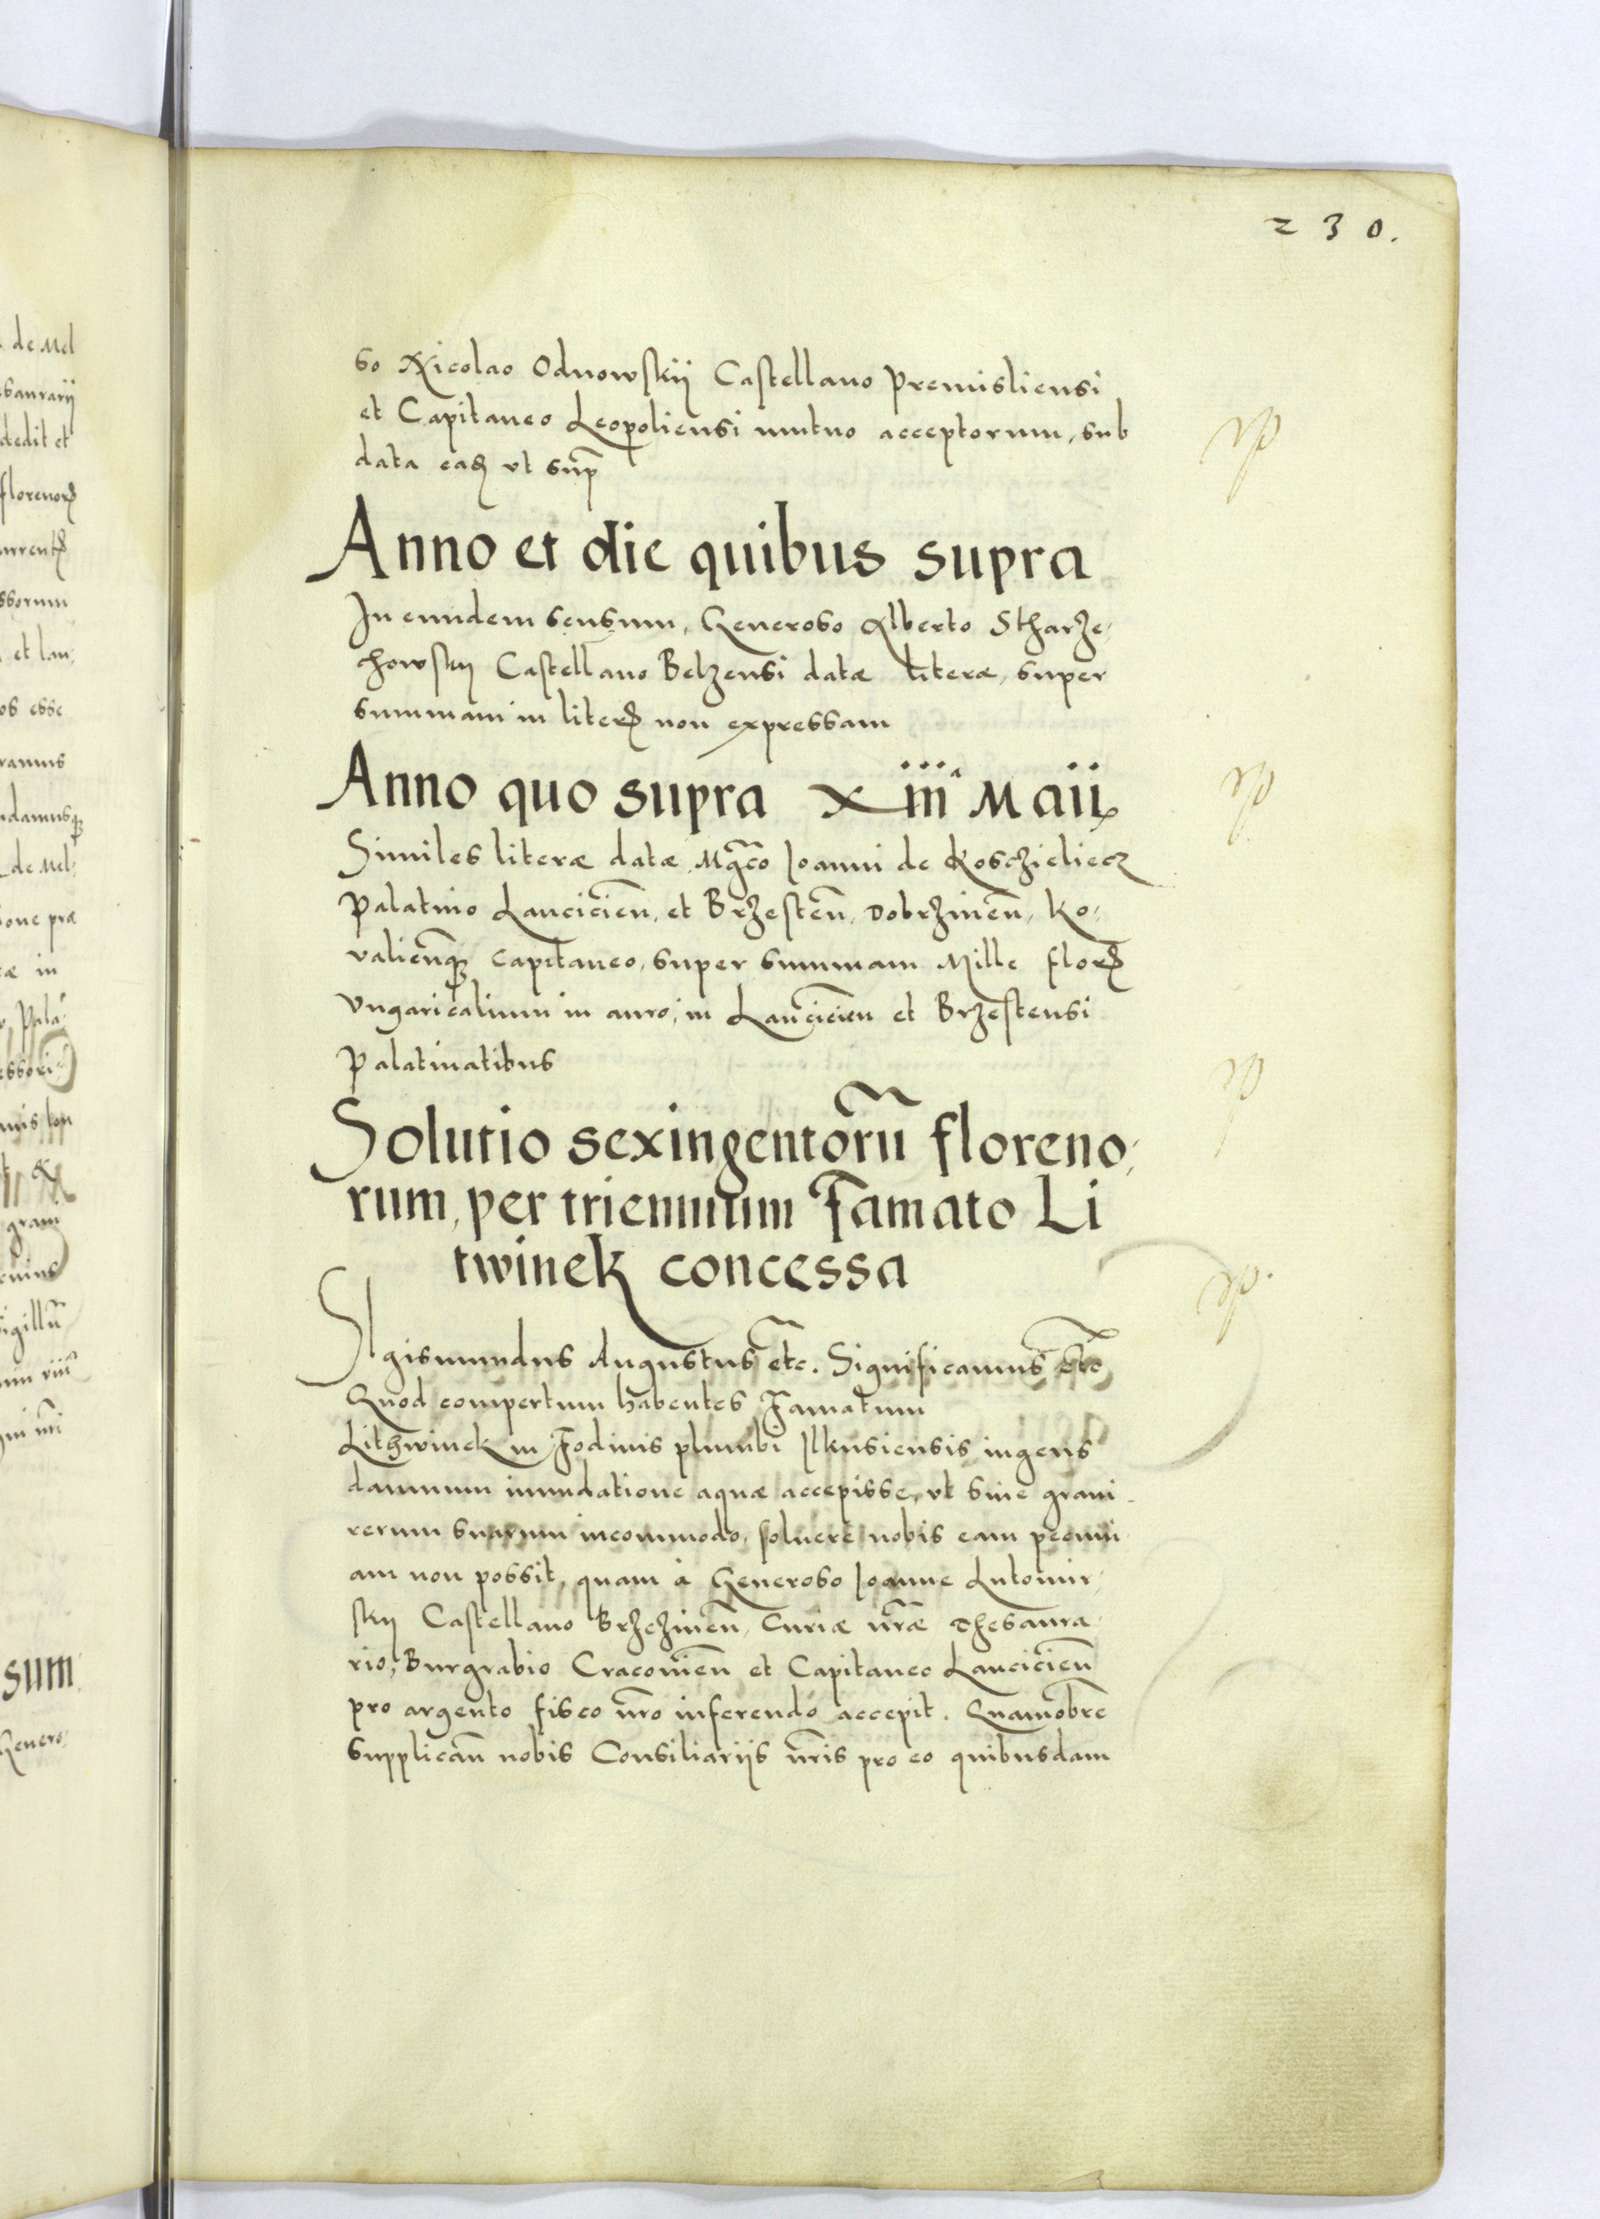 230.
so Nicolao Odnowskij Castellano Premisliensi
et Capitaneo Leopoliensi mutuo acceptorum, sub
data eadem ut supra
Anno et die quibus supra
In eundem sensum, Generoso Alberto Stharze,
chowskij Castellano Belzensi datæ literæ, super
summam in literis non expressam
Anno quo supra xiii Maii
Similes literæ datæ Mgco Joanni de Koschieliecz
Palatino Lancicień, et Brzesteń, Dobrzineń, Ko,
valieńque Capitaneo, super summam Mille floren
Vngaricalium in auro, in Lancicień et Brzestensi
Palatinatibus
Solutio sexingentorũ floreno,
rum, per triennium Famato Li
twinek concessa
Sigismundus Augustus etc. Significamus etc
Quod compertum habentes Famatum
Lithwinek in Fodinis plumbi Ilkusiensis ingens
damnum inundatione aquæ accepisse, vt sine graui
rerum suarum incommodo, soluere nobis eam pecuni
am non possit, quam à Generoso Joanne Lutomir,
skij Castellano Brzezineń, Curiæ nr̃æ Thesaura
rio, Burgrabio Cracouień et Capitaneo Lancicień
pro argento fisco nr̃o inferendo accepit. Quamobrẽ
supplicañ nobis Consiliariis nr̃is pro eo quibusdam
de Mel
dedit et
et lan,
os esse
de Mel,
ione præ
æ in
sum
Genero,